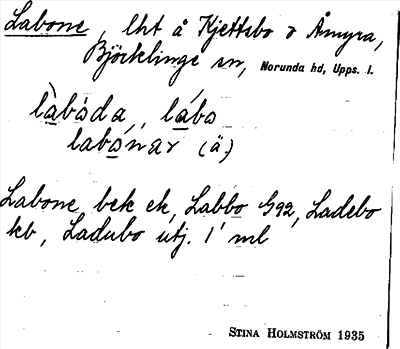 Labone, lht å Kjettsbo o Åmyra,
Björklinge sn, Norunda hd, Upps. l.
làbóda, lábo
labónar (ä)
Labone bek ek, Labbo G92, Ladebo
kb, Ladubo utj. 1 ml
STINA HOLMSTRÖM 1935